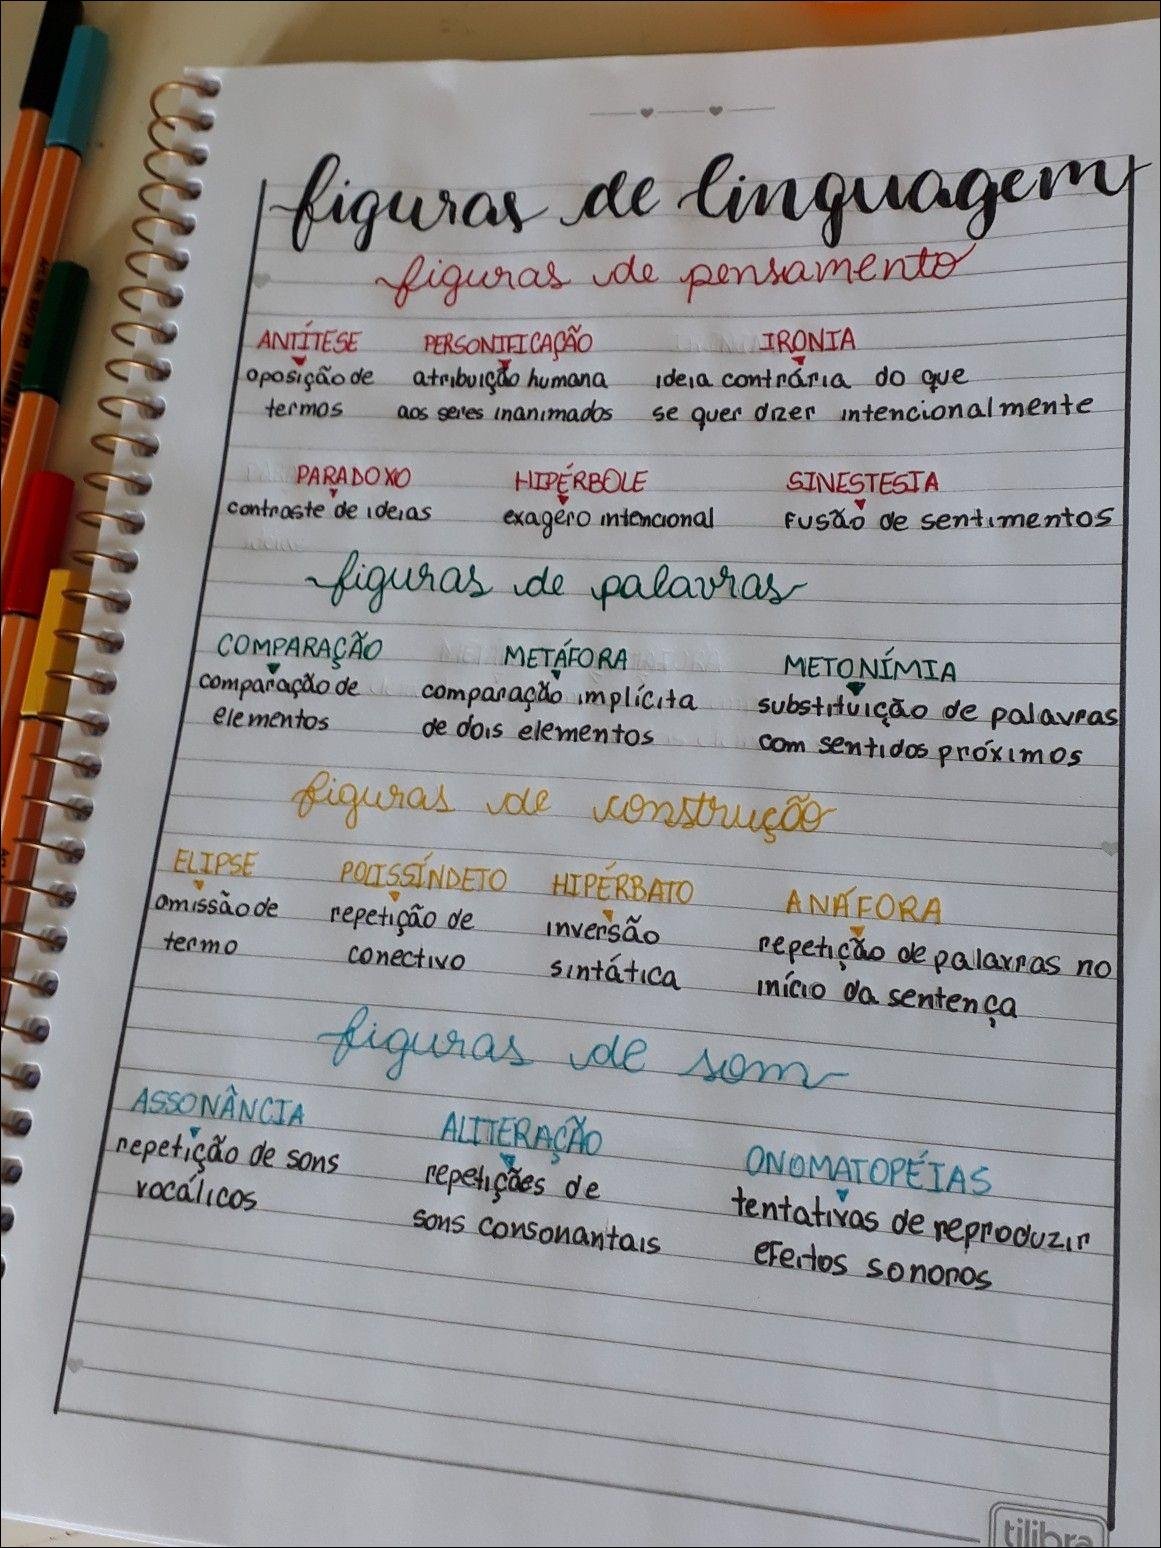 figuras de linguagem
figuras de pensamento
ANTÍTESE PERSONIFICAÇÃO IRONIA
oposição de atribuição humana ideia contrária do que
termos aos seres inanimados se quer dizer intencionalmente
PARADOXO HIPÉRBOLE SINESTESIA
contraste de ideias exagero intencional fusão de sentimentos
figuras de palavras
COMPARAÇÃO METÁFORA METONÍMIA
comparação de comparação implícita substituição de palavras
elementos de dois elementos com sentidos próximos
figuras de construção
ELIPSE POLISSÍNDETO HIPÉRBATO ANÁFORA
omissão de repetição de inversão repetição de palavras no
termo conectivo sintática início da sentença
figuras de som
ASSONÂNCIA ALITERAÇÃO ONOMATOPÉIAS
repetição de sons repetições de tentativas de reproduzir
vocálicos sons consonantais efeitos sonoros
tilibra